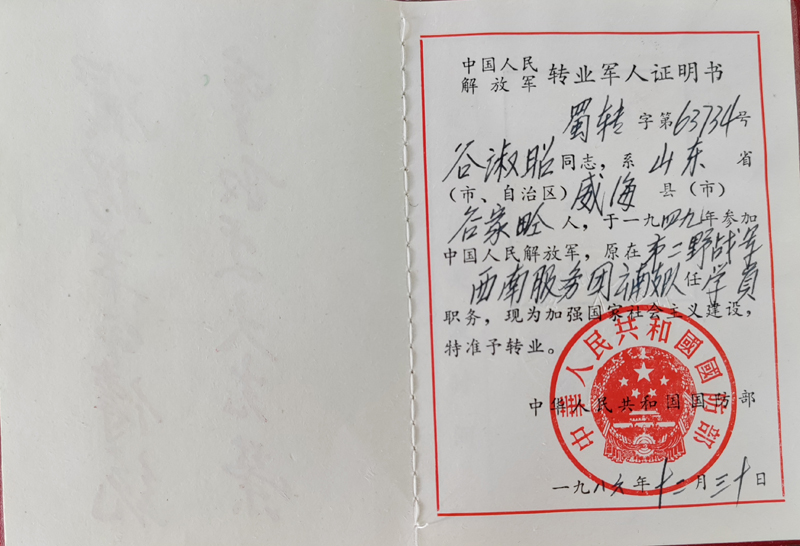 中国人民
解放军 转业军人证明书
蜀转字第63734号
谷淑昭同志，系山东省
（市、自治区）威海县（市）
谷家疃人，于一九四九年参加
中国人民解放军，原在第二野战军
西南服务团云南支队任学員
职务，现为加强国家社会主义建设，
特准予转业。
中华人民共和国国防部
中華人民共和國國防部
一九八六年十二月三十日